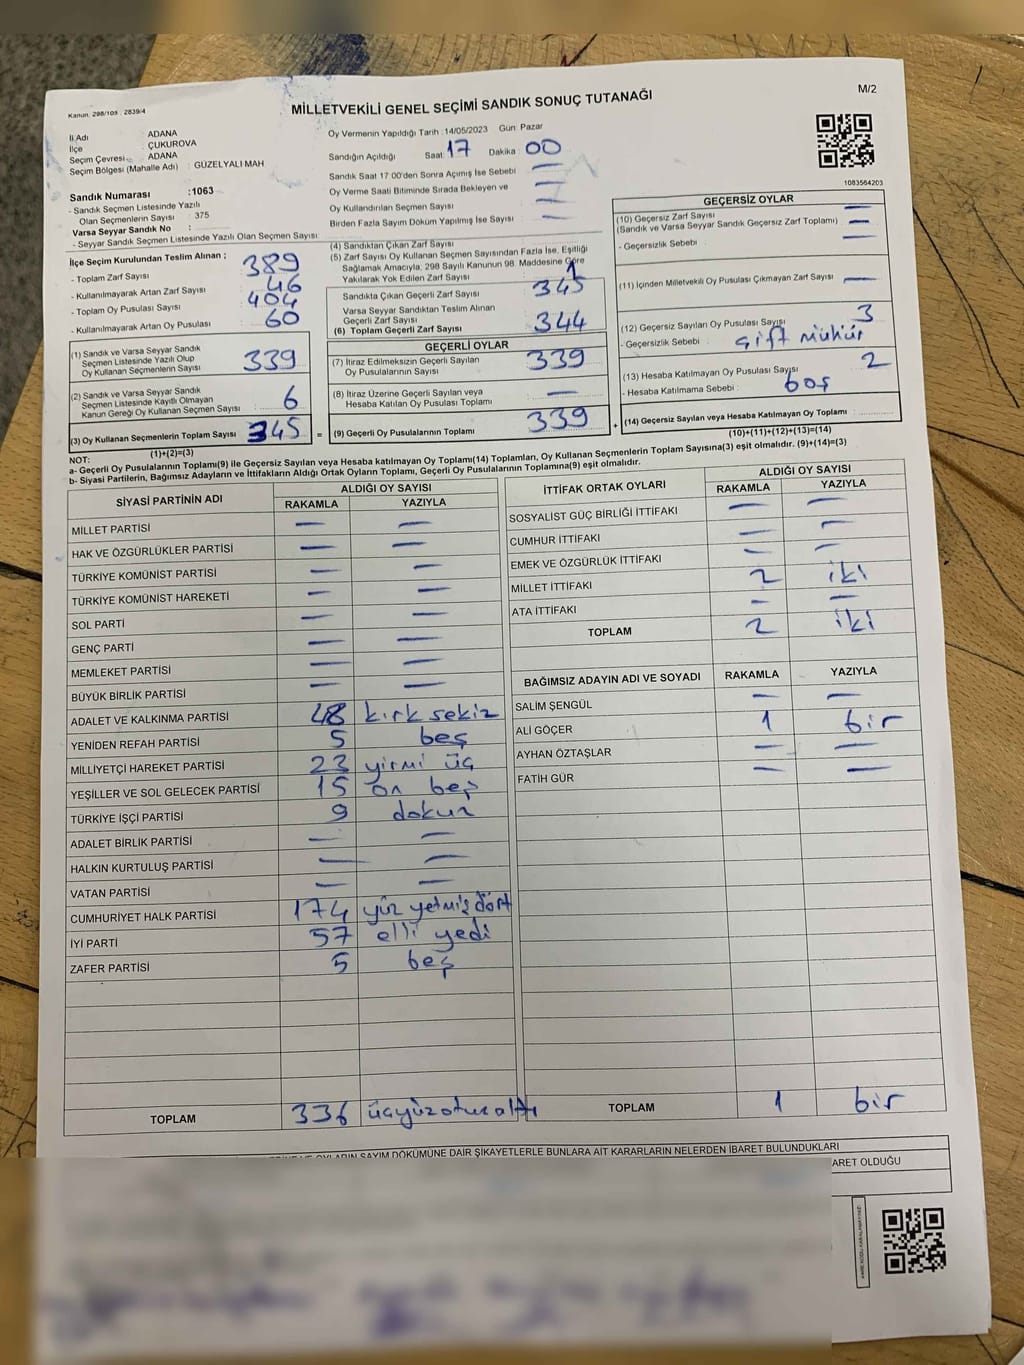 Kanun. 298/105 : 2839/4
MİLLETVEKİLİ GENEL SEÇİMİ SANDIK SONUÇ TUTANAĞI
M/2
İl Adı : ADANA
İlçe : ÇUKUROVA
Seçim Çevresi : ADANA
Seçim Bölgesi (Mahalle Adı) : GÜZELYALI MAH
Oy Vermenin Yapıldığı Tarih : 14/05/2023 Gün Pazar
Sandığın Açıldığı Saat 17 Dakika : 00
Sandık Saat 17 00'den Sonra Açımış İse Sebebi —
Oy Verme Saati Bitiminde Sırada Bekleyen ve
Oy Kullandırılan Seçmen Sayısı —
Birden Fazla Sayım Döküm Yapılmış İse Sayısı —
1083564203
Sandık Numarası :1063
- Sandık Seçmen Listesinde Yazılı
Olan Seçmenlerin Sayısı : 375
Varsa Seyyar Sandık No :
- Seyyar Sandık Seçmen Listesinde Yazılı Olan Seçmen Sayısı:
İlçe Seçim Kurulundan Teslim Alınan :
- Toplam Zarf Sayısı 389
- Kullanılmayarak Artan Zarf Sayısı 46
- Toplam Oy Pusulası Sayısı 404
- Kullanılmayarak Artan Oy Pusulası 60
(1) Sandık ve Varsa Seyyar Sandık
Seçmen Listesinde Yazılı Olup
Oy Kullanan Seçmenlerin Sayısı 339
(2) Sandık ve Varsa Seyyar Sandık
Seçmen Listesinde Kayıtlı Olmayan
Kanun Gereği Oy Kullanan Seçmen Sayısı 6
(3) Oy Kullanan Seçmenlerin Toplam Sayısı 345
(1)+(2)=(3)
(4) Sandıktan Çıkan Zarf Sayısı
(5) Zarf Sayısı Oy Kullanan Seçmen Sayısından Fazla İse, Eşitliği
Sağlamak Amacıyla, 298 Sayılı Kanunun 98. Maddesine Göre
Yakılarak Yok Edilen Zarf Sayısı 1
Sandıkta Çıkan Geçerli Zarf Sayısı 345
Varsa Seyyar Sandıktan Teslim Alınan
Geçerli Zarf Sayısı
(6) Toplam Geçerli Zarf Sayısı 344
GEÇERLİ OYLAR
(7) İtiraz Edilmeksizin Geçerli Sayılan
Oy Pusulalarının Sayısı 339
(8) İtiraz Üzerine Geçerli Sayılan veya
Hesaba Katılan Oy Pusulası Toplamı —
(9) Geçerli Oy Pusulalarının Toplamı 339
GEÇERSİZ OYLAR
(10) Geçersiz Zarf Sayısı —
(Sandık ve Varsa Seyyar Sandık Geçersiz Zarf Toplamı) —
- Geçersizlik Sebebi : —
(11) İçinden Milletvekili Oy Pusulası Çıkmayan Zarf Sayısı —
(12) Geçersiz Sayılan Oy Pusulası Sayısı 3
- Geçersizlik Sebebi : çift mühür
(13) Hesaba Katılmayan Oy Pusulası Sayısı 2
- Hesaba Katılmama Sebebi : boş
(14) Geçersiz Sayılan veya Hesaba Katılmayan Oy Toplamı :
(10)+(11)+(12)+(13)=(14)
NOT:
a- Geçerli Oy Pusulalarının Toplamı(9) ile Geçersiz Sayılan veya Hesaba katılmayan Oy Toplamı(14) Toplamları, Oy Kullanan Seçmenlerin Toplam Sayısına(3) eşit olmalıdır. (9)+(14)=(3)
b- Siyasi Partilerin, Bağımsız Adayların ve İttifakların Aldığı Ortak Oyların Toplamı, Geçerli Oy Pusulalarının Toplamına(9) eşit olmalıdır.
SİYASİ PARTİNİN ADI ALDIĞI OY SAYISI
RAKAMLA YAZIYLA
MİLLET PARTİSİ — —
HAK VE ÖZGÜRLÜKLER PARTİSİ — —
TÜRKİYE KOMÜNİST PARTİSİ — —
TÜRKİYE KOMÜNİST HAREKETİ — —
SOL PARTİ — —
GENÇ PARTİ — —
MEMLEKET PARTİSİ — —
BÜYÜK BİRLİK PARTİSİ — —
ADALET VE KALKINMA PARTİSİ 48 kırk sekiz
YENİDEN REFAH PARTİSİ 5 beş
MİLLİYETÇİ HAREKET PARTİSİ 23 yirmi üç
YEŞİLLER VE SOL GELECEK PARTİSİ 15 on beş
TÜRKİYE İŞÇİ PARTİSİ 9 dokuz
ADALET BİRLİK PARTİSİ — —
HALKIN KURTULUŞ PARTİSİ — —
VATAN PARTİSİ — —
CUMHURİYET HALK PARTİSİ 174 yüz yetmiş dört
İYİ PARTİ 57 elli yedi
ZAFER PARTİSİ 5 beş
TOPLAM 336 üçyüzotuzaltı
İTTİFAK ORTAK OYLARI ALDIĞI OY SAYISI
RAKAMLA YAZIYLA
SOSYALİST GÜÇ BİRLİĞİ İTTİFAKI — —
CUMHUR İTTİFAKI — —
EMEK VE ÖZGÜRLÜK İTTİFAKI — —
MİLLET İTTİFAKI 2 iki
ATA İTTİFAKI — —
TOPLAM 2 iki
BAĞIMSIZ ADAYIN ADI VE SOYADI RAKAMLA YAZIYLA
SALİM ŞENGÜL — —
ALİ GÖÇER 1 bir
AYHAN ÖZTAŞLAR — —
FATİH GÜR — —
TOPLAM 1 bir
OYLARIN SAYIM DÖKÜMÜNE DAİR ŞİKAYETLERLE BUNLARA AİT KARARLARIN NELERDEN İBARET BULUNDUKLARI
ARET OLDUĞU